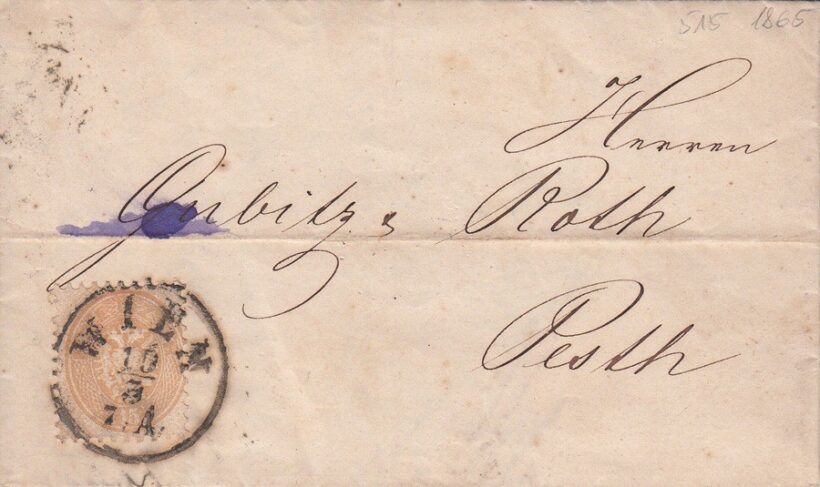 515 1865
Herren
Gubitz & Roth
Pesth
WIEN
10
3
7.A.